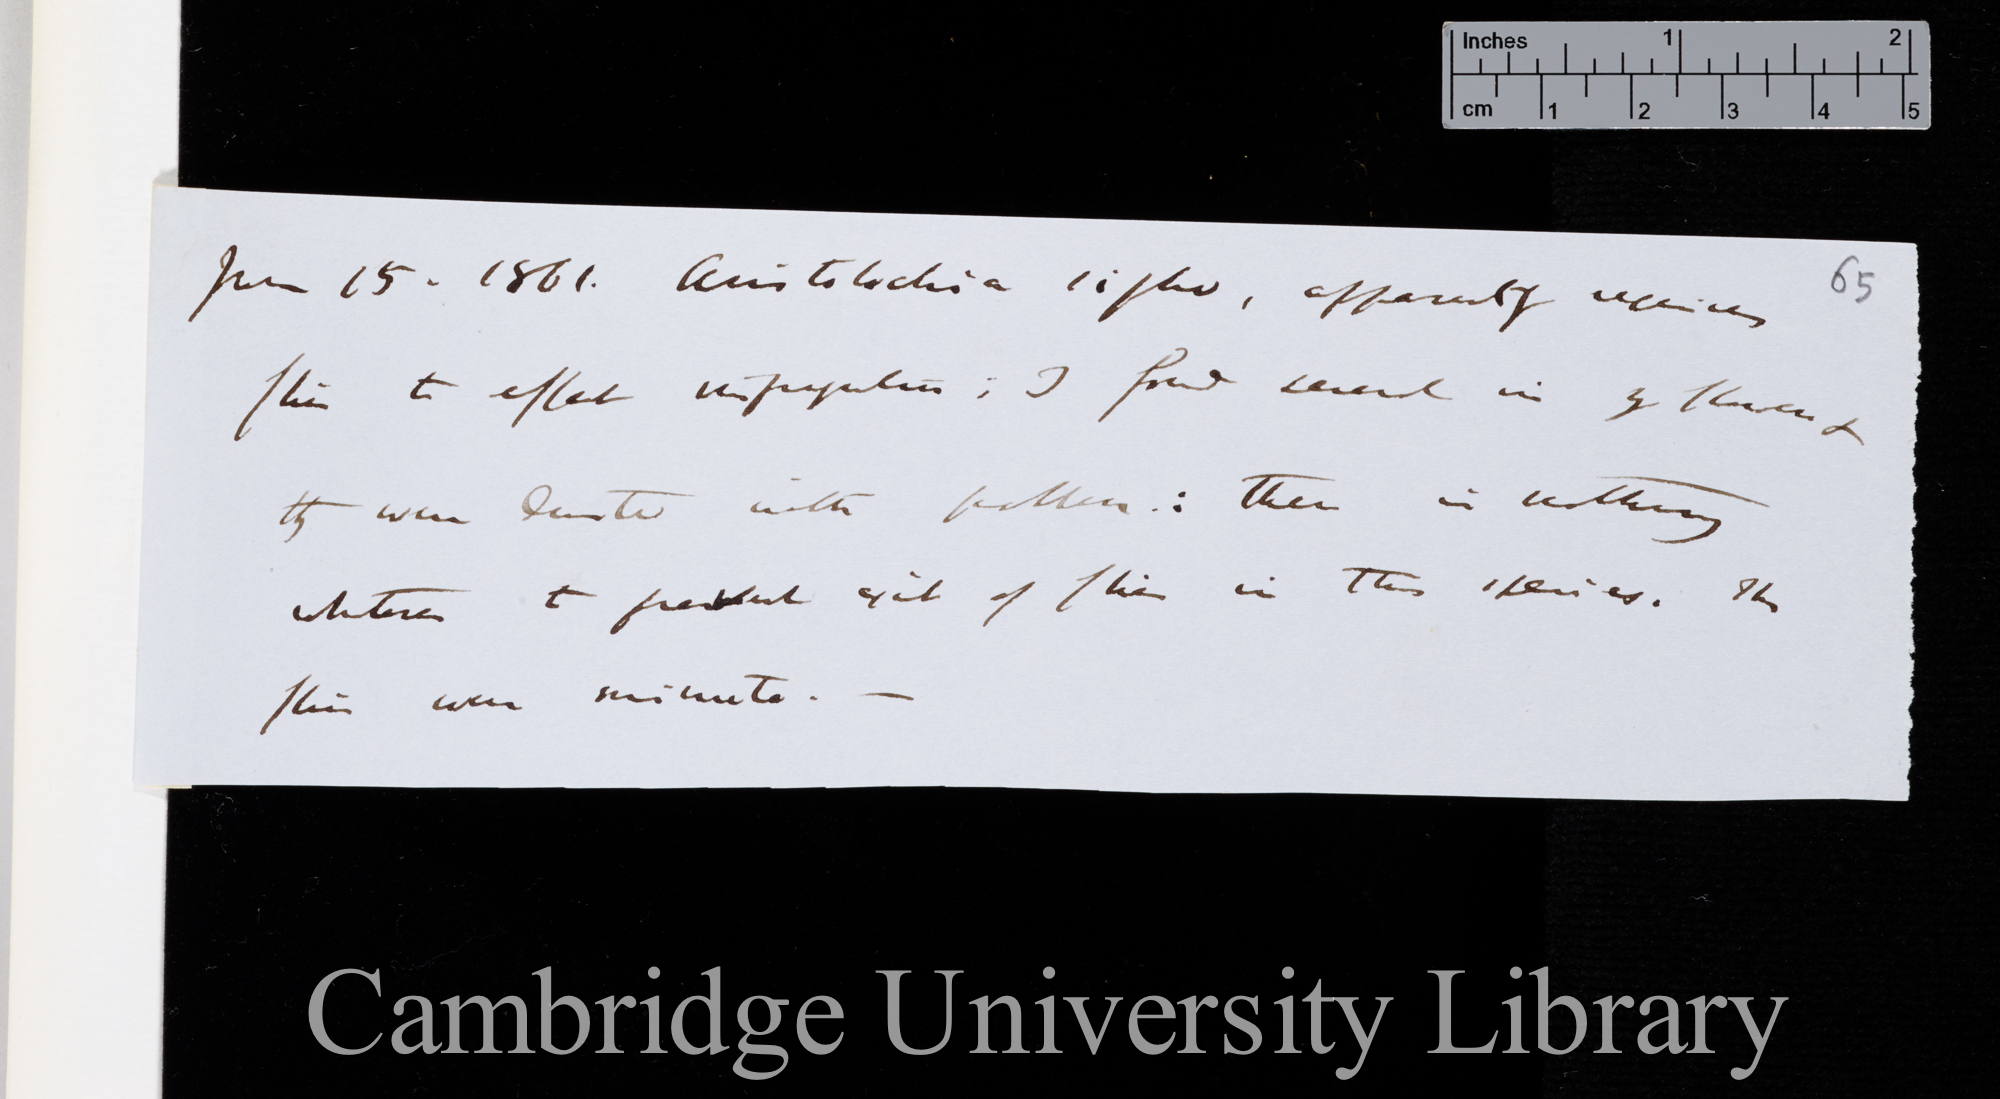 Inches 1 2
cm 1 2 3 4 5
65
June 15. 1861. Aristolochia sipho, apparently requires
flies to effect impregnation; I found several in yᵉ flowers &
they were dusted with pollen.: There is nothing
whatever to prevent exit of flies in this species. The
flies were minute. —
Cambridge University Library